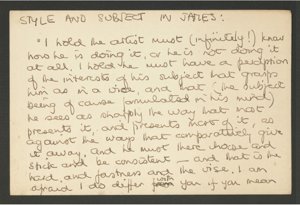 STYLE AND SUBJECT IN JAMES:
"I hold the artist must (infinitely!) know
how he is doing it, or he is not doing it
at all. I hold he must have a perception
of the interests of his subject that grasps
him as in a vice, and that (the subject
being of cause formulated in his mind)
he sees as sharply the way that most
presents it, and presents most of it, as
against the ways that comparatively give
it away. And he must there choose and
stick and be consistent — and that is the
hard, and fastness and the vise. I am
afraid I do differ with you if you mean